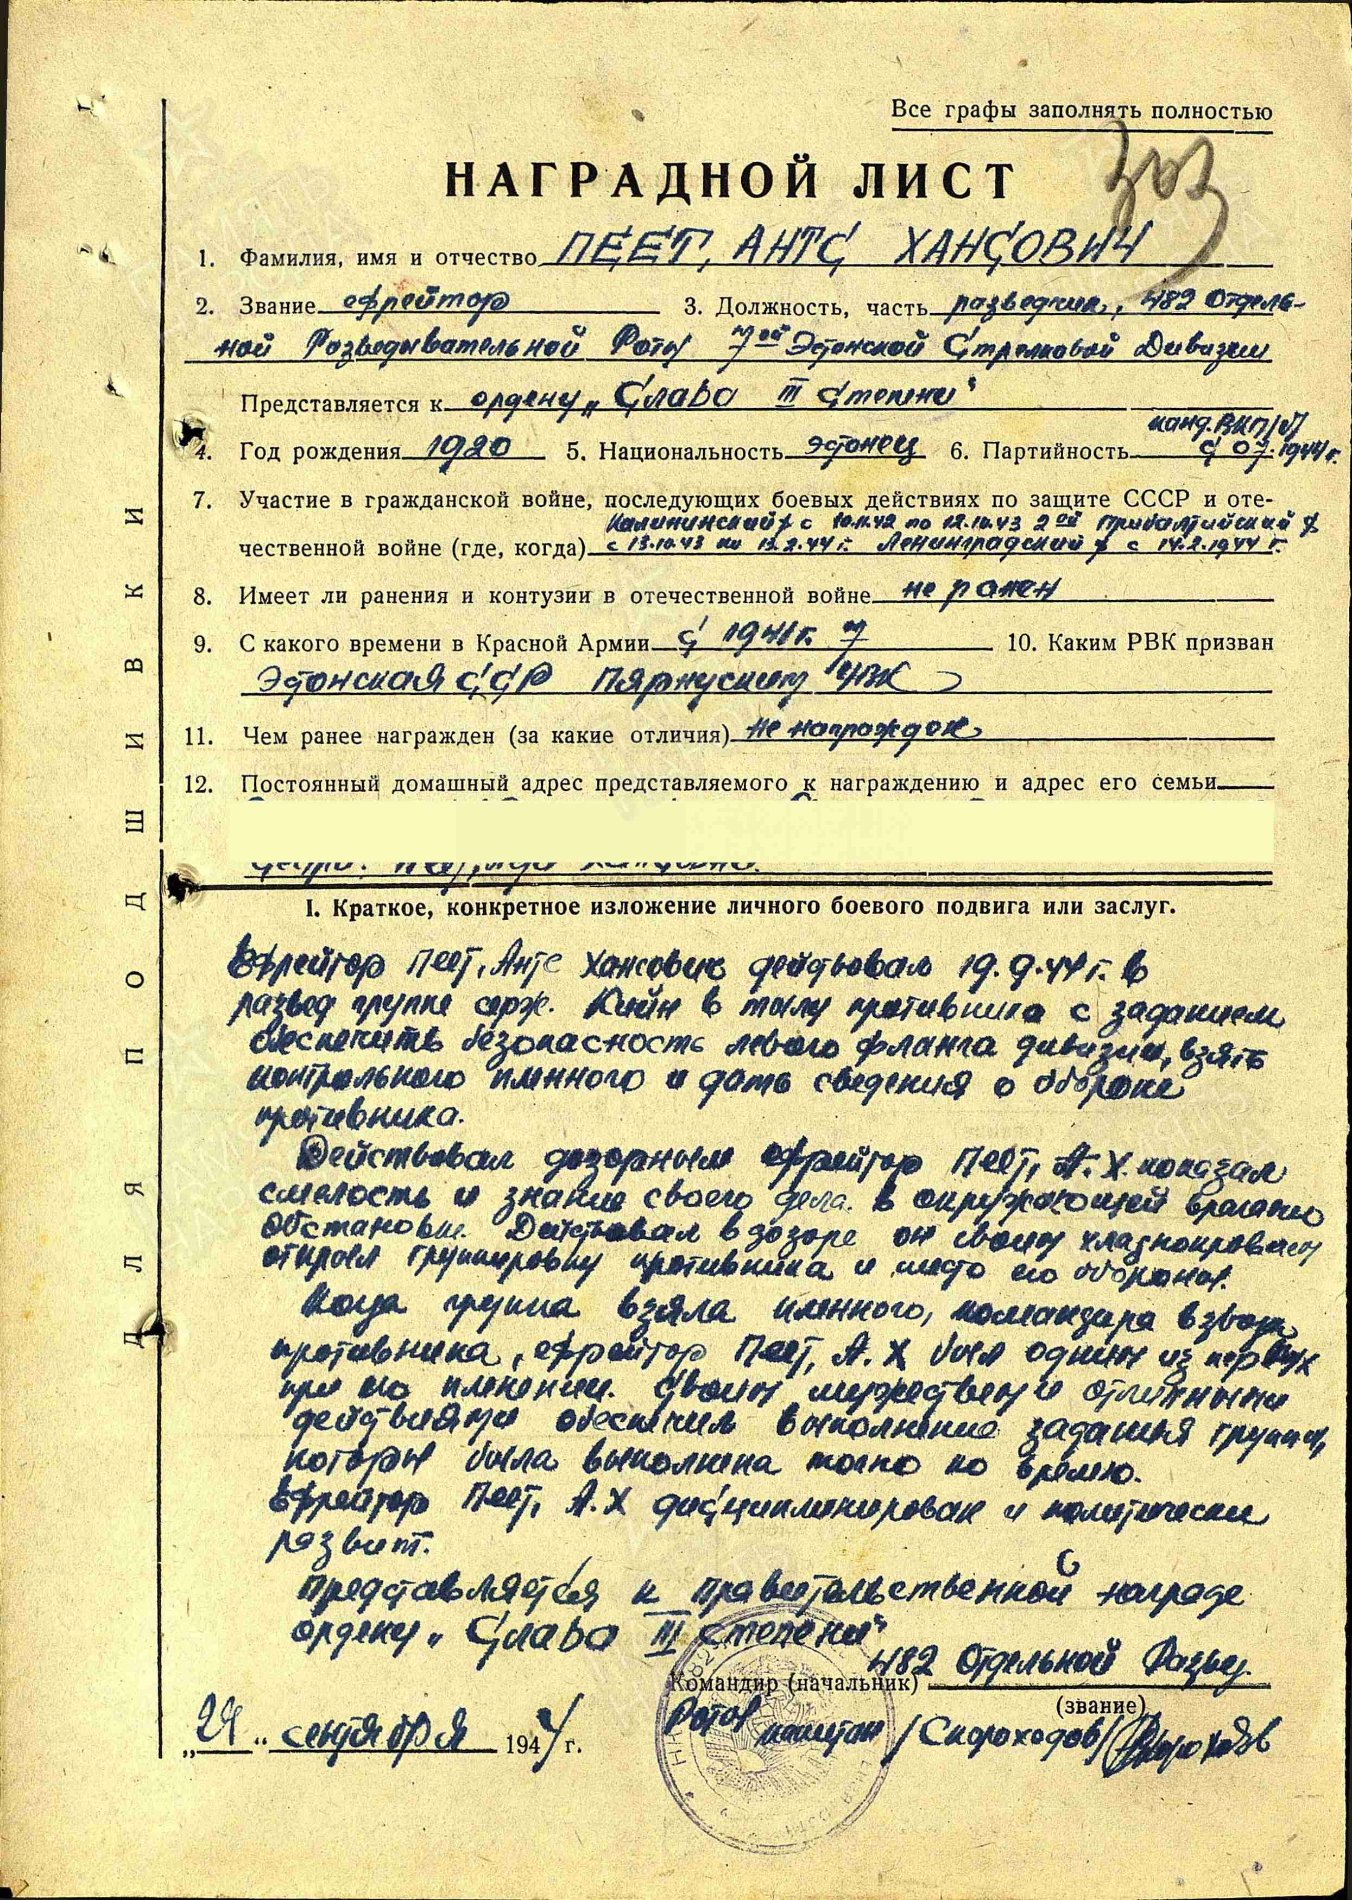 Все графы заполнять полностью
303
НАГРАДНОЙ ЛИСТ
1. Фамилия, имя и отчество ПЕЕТ, АНТС ХАНСОВИЧ
2. Звание ефрейтор 3. Должность, часть разведчик, 482 Отдель-
ной Разведывательной Роты 7ой Эстонской Стрелковой Дивизии
Представляется к ордену „Слава III Степени"
канд. ВКП/б/
4. Год рождения 1920 5. Национальность эстонец 6. Партийность с 07.1944 г.
7. Участие в гражданской войне, последующих боевых действиях по защите СССР и оте-
Калининский ф с 10.11.42 по 12.10.43 2ой Прибалтийский ф
чественной войне (где, когда) с 13.10.43 по 13.2.44 г. Ленинградский ф с 14.2.1944 г.
8. Имеет ли ранения и контузии в отечественной войне не ранен
9. С какого времени в Красной Армии с 1941 г. 7 10. Каким РВК призван
Эстонская ССР Пярнуским УВК
11. Чем ранее награжден (за какие отличия) не награжден
12. Постоянный домашный адрес представляемого к награждению и адрес его семьи
I. Краткое, конкретное изложение личного боевого подвига или заслуг.
Ефрейтор Пеет, Антс Хансович действовал 19.9.44 г. в
развед группе серж. Кийн в тылу противника с заданием
обеспечить безопасность левого фланга дивизии, взять
контрольного пленного и дать сведения о обороне
противника.
Действовал дозорным ефрейтор Пеет, А.Х. показал
смелость и знание своего дела в окружающей вражено
обстановке. Действовал в дозоре он своим хладнокровием
открыл группировку противника и место его обороны.
Когда группа взяла пленного, командира взвода
противника, ефрейтор Пеет, А.Х был одним из первых
при его пленении. Своим мужеством и отличными
действиями обеспечил выполнение задания группы,
которы была выполнена точно по время.
Ефрейтор Пеет, А.Х дисциплинирован и политически
развит.
Представляется к правительственной награде
ордену „Слава III Степени"
482 Отдельной Развед.
Командир (начальник)
(звание)
Роты капитан /Скороходов/ Скороходов
„24" сентября 1944 г.
ДЛЯ ПОДШИВКИ